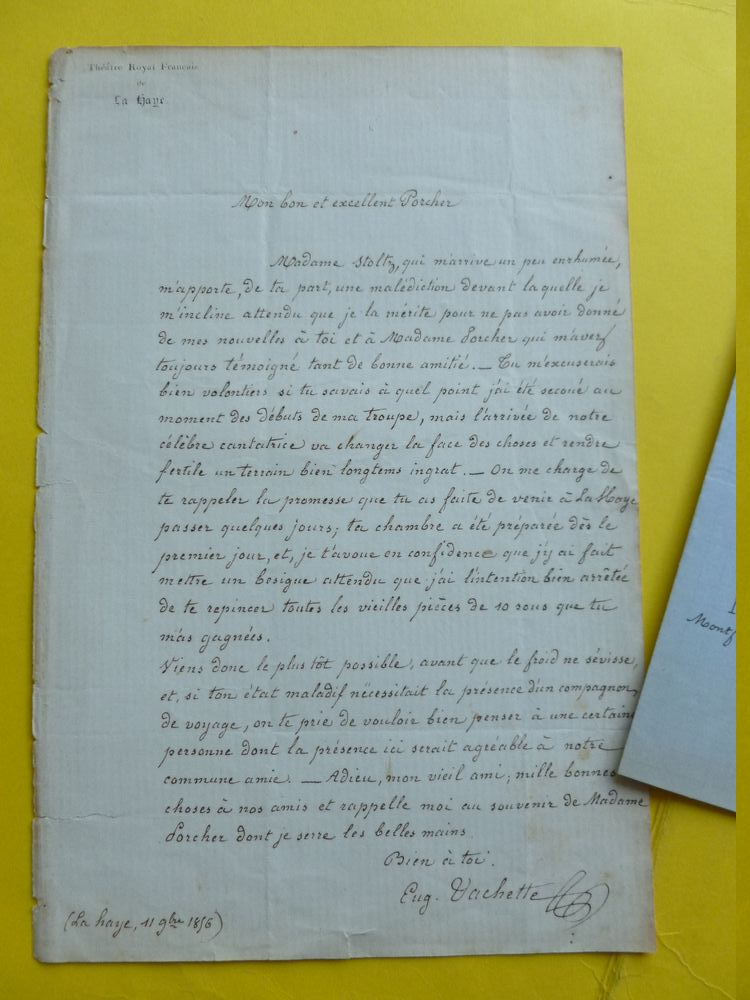 Théâtre Royal Français
de
La Haye
Mon bon et excellent Porcher
Madame Stoltz, qui m'arrive un peu enrhumée,
m'apporte, de ta part, une malédiction devant laquelle je
m'incline attendu que je la mérite pour ne pas avoir donné
de mes nouvelles à toi et à Madame Porcher qui m'avez
toujours témoigné tant de bonne amitié. — Tu m'excuserais
bien volontiers si tu savais à quel point j'ai été secoué au
moment des débuts de ma troupe, mais l'arrivée de notre
célèbre cantatrice va changer la face des choses et rendre
fertile un terrain bien longtems ingrat. — On me charge de
te rappeler la promesse que tu as faite de venir à La Haye
passer quelques jours; ta chambre a été préparée dès le
premier jour, et, je t'avoue en confidence que j'y ai fait
mettre un besigue attendu que j'ai l'intention bien arrêtée
de te repincer toutes les vieilles pièces de 10 sous que tu
m'as gagnées.
Viens donc le plus tôt possible, avant que le froid ne sévisse,
et, si ton état maladif nécessitait la présence d'un compagnon
de voyage, on te prie de vouloir bien penser à une certaine
personne dont la présence ici serait agréable à notre
commune amie. — Adieu, mon vieil ami; mille bonnes
choses à nos amis et rappelle moi au souvenir de Madame
Porcher dont je serre les belles mains.
Bien à toi.
Eug. Vachette
(La haye, 11 9bre 1856)
Montf